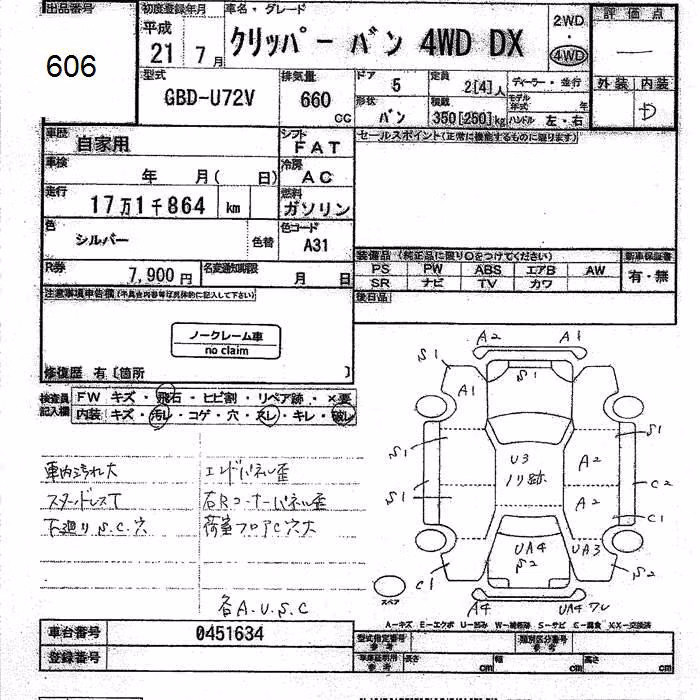 出品番号 初度登録年月 車名・グレード 2WD 評価点
606 平成 21年 7月 クリッパー バン 4WD DX ・ 4WD —
型式 排気量 ドア 5 定員 2[4]人 ディーラー・並行 外装 内装
GBD-U72V 660 CC 形状 バン 積載 350[250]kg モデル年式 年 ハンドル 左・右 D
車歴 自家用 シフト FAT セールスポイント(正常に機能するものに限ります)
車検 年 月( 日) 冷房 AC
走行 17万1千864 km 燃料 ガソリン
色 シルバー 色替 色コード A31
装備品 (純正品に限り○をつけてください) 新車保証書
R券 7,900円 名変通知期限 月 日 PS PW ABS エアB AW 有・無
SR ナビ TV カワ
注意事項申告欄(不具合内容等を具体的に記入して下さい) 後日品
ノークレーム車
no claim
修復歴 有〔箇所 〕
検査員記入欄 FW キズ・飛石・ヒビ割・リペア跡・×要
内装 キズ・汚レ・コゲ・穴・スレ・キレ・破レ
車内汚れ大 エンドパネル歪
スタッドレスT 右Rコーナーパネル歪
下廻りS.C.穴 荷室フロアC穴大
各A.U.S.C
A2 A1
S1 S1
A1
S1 U3 S1
ノリ跡 A2
S1 A2 C2
C1
UA4 UA3
S2
C1 S2
スペア
A4 UA4 ワレ
A—キズ E—エクボ U—凹み W—補修跡 S—サビ C—腐食 XX—交換済
車台番号 0451634 型式指定番号 参考 類別区分番号 参考
登録番号 車庫証明用 参考 長さ cm 幅 cm 高さ cm